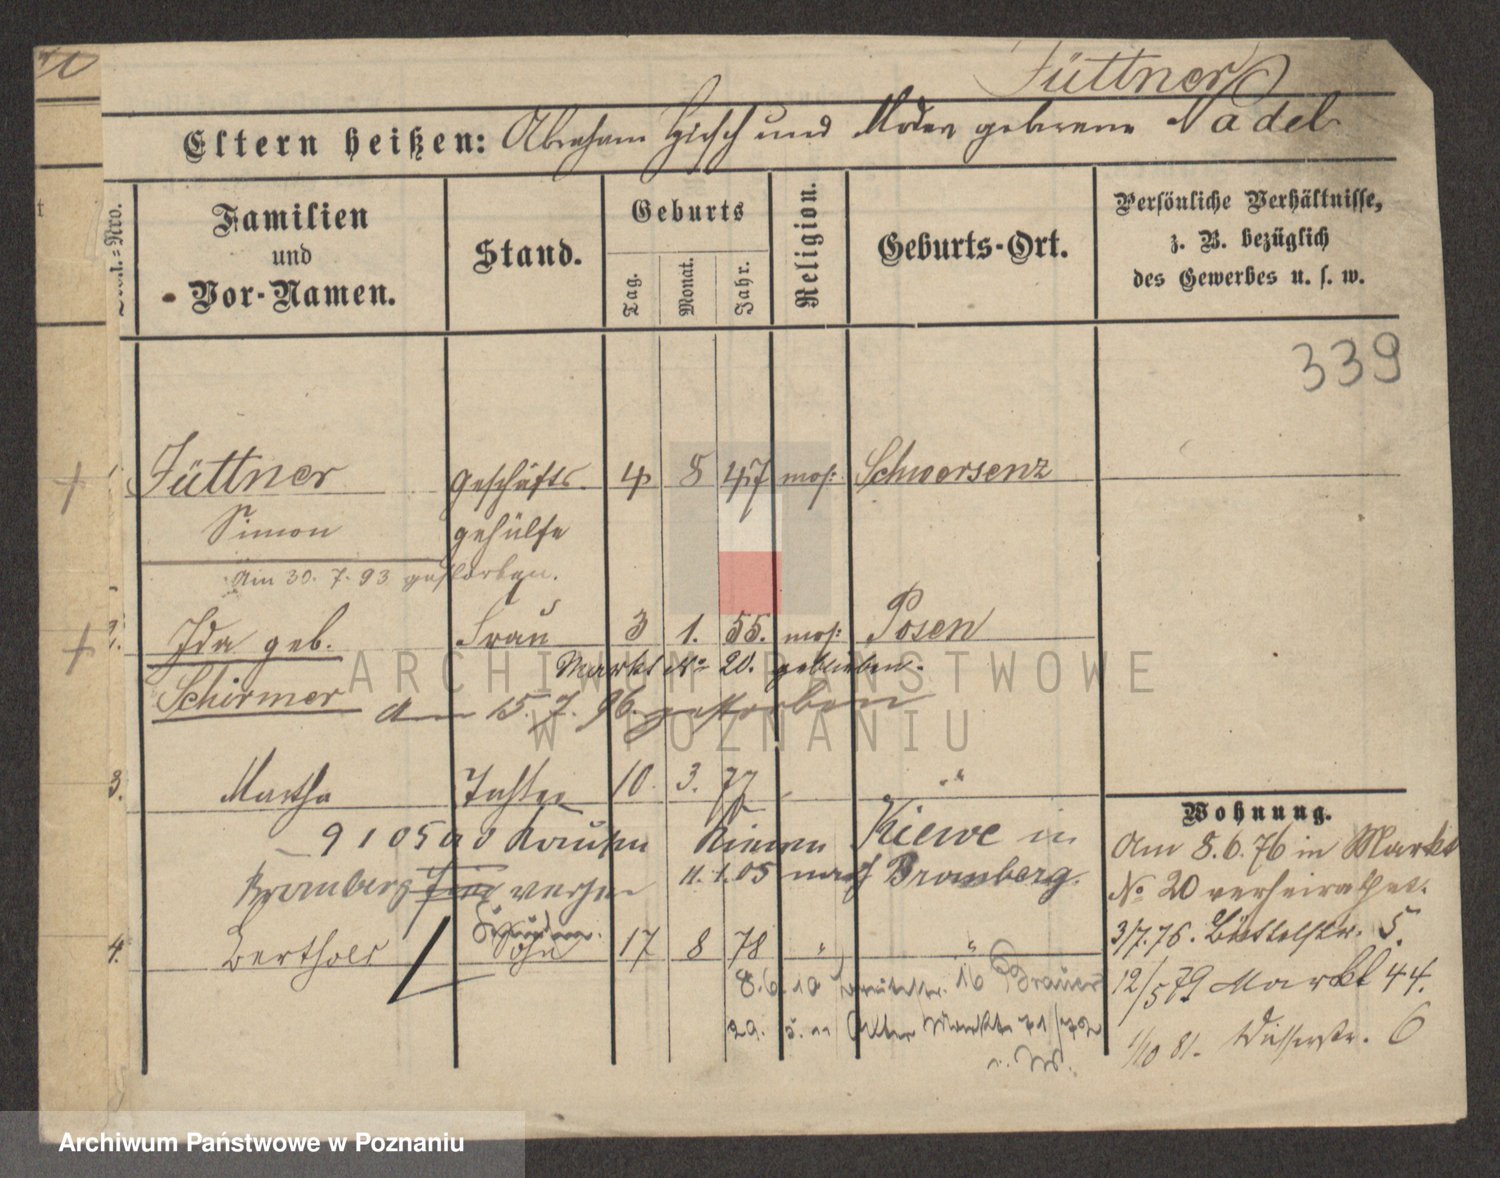 Jüttner
Eltern heißen: Abraham Hirsch und geborene Nadel
Prod.=Nro.
Familien
und
Vor-Namen.
Stand.
Geburts
Tag.
Monat.
Jahr.
Religion.
Geburts-Ort.
Persönliche Verhältnisse,
z. B. bezüglich
des Gewerbes u. s. w.
339
Jüttner Geschäfts- 4 8 47 mos: Schwersenz
Simon gehülfe
Am 30. 7. 93 gestorben.
2. Ida geb. Frau 3 1. 55. mos: Posen
Markt No 20. geblieben.
Schirmer am 15. 7. 96. gestorben
3. Martha Tochter 10. 3. 77 "
9105 Kiewe in
Bromberg 11. 1. 05 nach Bromberg.
4. Berthold Sohn 17 8 78 " "
8. 6. 10 16 Brauer
29. 5. 11 Alter Markt 71/72
Wohnung.
Am 8. 6. 76 in Markt
No 20 verheirathet.
3/7. 76. 5.
12/5 79 Markt 44.
1/10 81. 6
ARCHIWUM PAŃSTWOWE
W POZNANIU
Archiwum Państwowe w Poznaniu